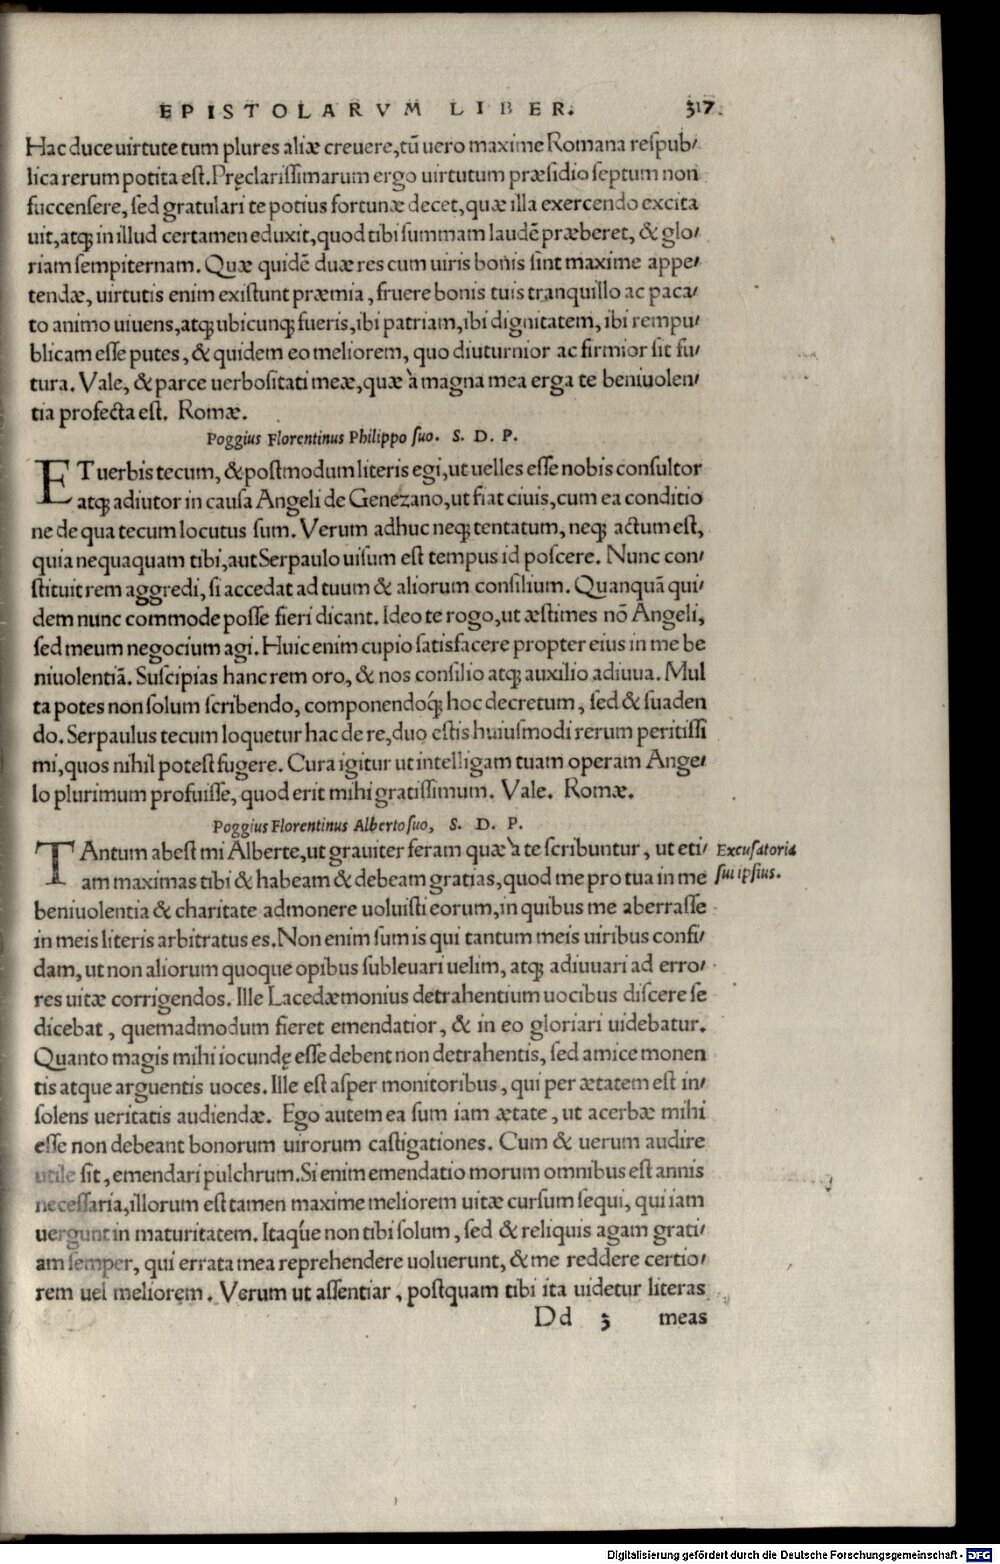 EPISTOLARVM LIBER. 317.
Hac duce uirtute tum plures aliæ creuere, tũ uero maxime Romana respub⸗
lica rerum potita est. Pręclarissimarum ergo uirtutum præsidio septum non
succensere, sed gratulari te potius fortunæ decet, quæ illa exercendo excita
uit, atq; in illud certamen eduxit, quod tibi summam laudẽ præberet, & glo⸗
riam sempiternam. Quæ quidẽ duæ res cum uiris bonis sint maxime appe⸗
tendæ, uirtutis enim existunt præmia, fruere bonis tuis tranquillo ac paca⸗
to animo uiuens, atq; ubicunq; fueris, ibi patriam, ibi dignitatem, ibi rempu⸗
blicam esse putes, & quidem eo meliorem, quo diuturnior ac firmior sit fu⸗
tura. Vale, & parce uerbositati meæ, quæ à magna mea erga te beniuolen⸗
tia profecta est. Romæ.
Poggius Florentinus Philippo suo. S. D. P.
ET uerbis tecum, & postmodum literis egi, ut uelles esse nobis consultor
atq; adiutor in causa Angeli de Genezano, ut fiat ciuis, cum ea conditio
ne de qua tecum locutus sum. Verum adhuc neq; tentatum, neq; actum est,
quia nequaquam tibi, aut Serpaulo uisum est tempus id poscere. Nunc con⸗
stituit rem aggredi, si accedat ad tuum & aliorum consilium. Quanquã qui⸗
dem nunc commode posse fieri dicant. Ideo te rogo, ut æstimes nõ Angeli,
sed meum negocium agi. Huic enim cupio satisfacere propter eius in me be
niuolentiã. Suscipias hanc rem oro, & nos consilio atq; auxilio adiuua. Mul
ta potes non solum scribendo, componendoq́; hoc decretum, sed & suaden
do. Serpaulus tecum loquetur hac de re, duo estis huiusmodi rerum peritissi
mi, quos nihil potest fugere. Cura igitur ut intelligam tuam operam Ange⸗
lo plurimum profuisse, quod erit mihi gratissimum. Vale. Romæ.
Poggius Florentinus Alberto suo, S. D. P.
TAntum abest mi Alberte, ut grauiter feram quæ à te scribuntur, ut eti⸗ Excusatoria
am maximas tibi & habeam & debeam gratias, quod me pro tua in me sui ipsius.
beniuolentia & charitate admonere uoluisti eorum, in quibus me aberrasse
in meis literis arbitratus es. Non enim sum is qui tantum meis uiribus confi⸗
dam, ut non aliorum quoque opibus subleuari uelim, atq; adiuuari ad erro⸗
res uitæ corrigendos. Ille Lacedæmonius detrahentium uocibus discere se
dicebat, quemadmodum fieret emendatior, & in eo gloriari uidebatur.
Quanto magis mihi iocundę esse debent non detrahentis, sed amice monen
tis atque arguentis uoces. Ille est asper monitoribus, qui per ætatem est in⸗
solens ueritatis audiendæ. Ego autem ea sum iam ætate, ut acerbæ mihi
esse non debeant bonorum uirorum castigationes. Cum & uerum audire
utile sit, emendari pulchrum. Si enim emendatio morum omnibus est annis
necessaria, illorum est tamen maxime meliorem uitæ cursum sequi, qui iam
uergunt in maturitatem. Itaque non tibi solum, sed & reliquis agam grati⸗
am semper, qui errata mea reprehendere uoluerunt, & me reddere certio⸗
rem uel meliorem. Verum ut assentiar, postquam tibi ita uidetur literas
Dd 3 meas
Digitalisierung gefördert durch die Deutsche Forschungsgemeinschaft - DFG